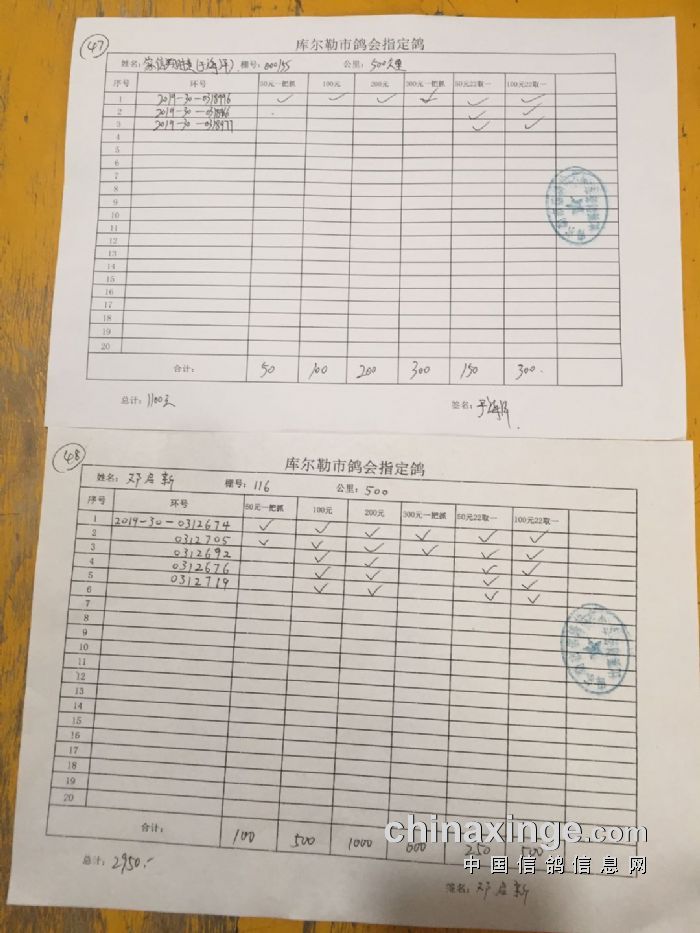 47
库尔勒市鸽会指定鸽
姓名: (于海洋) 棚号: 000135 公里: 500公里
序号 环号 50元一把抓 100元 200元 300元一把抓 50元22取一 100元22取一
1 2019-30-0318996 ✓ ✓ ✓ ✓ ✓ ✓
2 2019-30- ✓ ✓
3 2019-30-0318977 ✓ ✓
4
5
6
7
8
9
10
11
12
13
14
15
16
17
18
19
20
合计: 50 100 200 300 150 300
总计: 1100元 签名:
48
库尔勒市鸽会指定鸽
姓名: 邓启新 棚号: 116 公里: 500
序号 环号 50元一把抓 100元 200元 300元一把抓 50元22取一 100元22取一
1 2019-30-0312674 ✓ ✓ ✓ ✓ ✓ ✓
2 0312705 ✓ ✓ ✓ ✓ ✓ ✓
3 0312692 ✓ ✓ ✓ ✓
4 0312676 ✓ ✓ ✓ ✓
5 0312719 ✓ ✓ ✓ ✓
6
7
8
9
10
11
12
13
14
15
16
17
18
19
20
合计: 100 500 1000 600 250 500
总计: 2950.-
签名: 邓启新
chinaxinge.com
中国信鸽信息网